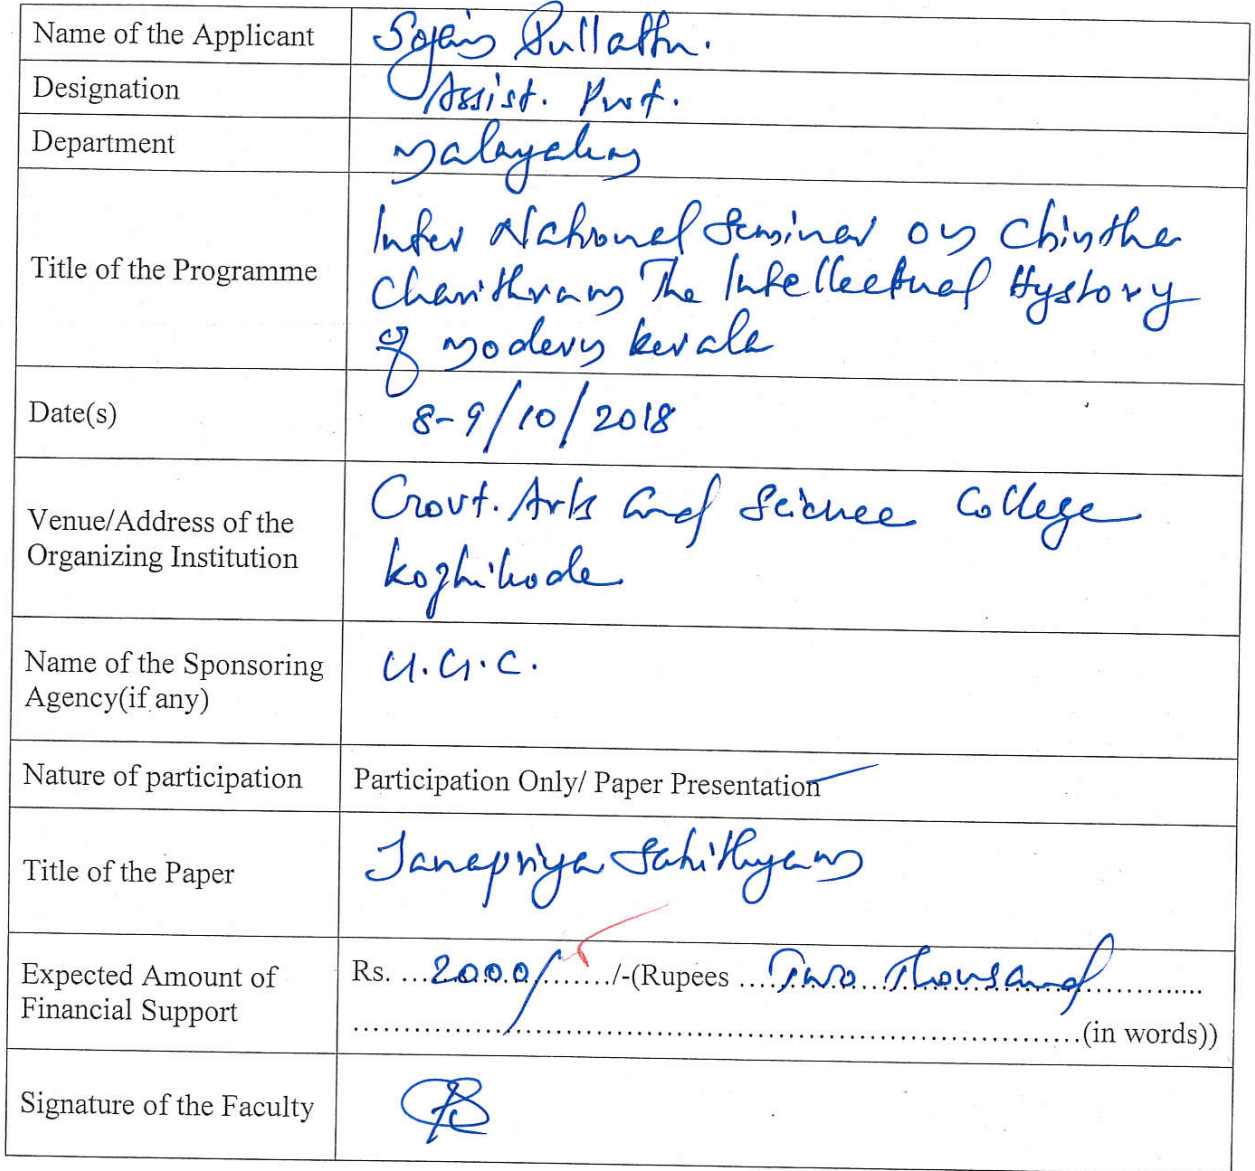 Name of the Applicant Sojan Pullattu.
Designation Assist. Prof.
Department Malayalam
Title of the Programme
Inter National Seminar on Chintha
Charithram The Intellectual Hystory
of Modern Kerala
Date(s) 8-9/10/2018
Venue/Address of the
Organizing Institution
Govt. Arts and Science College
Kozhikode
Name of the Sponsoring
Agency(if any)
U.G.C.
Nature of participation Participation Only/ Paper Presentation
Title of the Paper Janapriya Sahithyam
Expected Amount of
Financial Support
Rs. ...2000/......./-(Rupees ....Two Thousand..........
....................(in words))
Signature of the Faculty